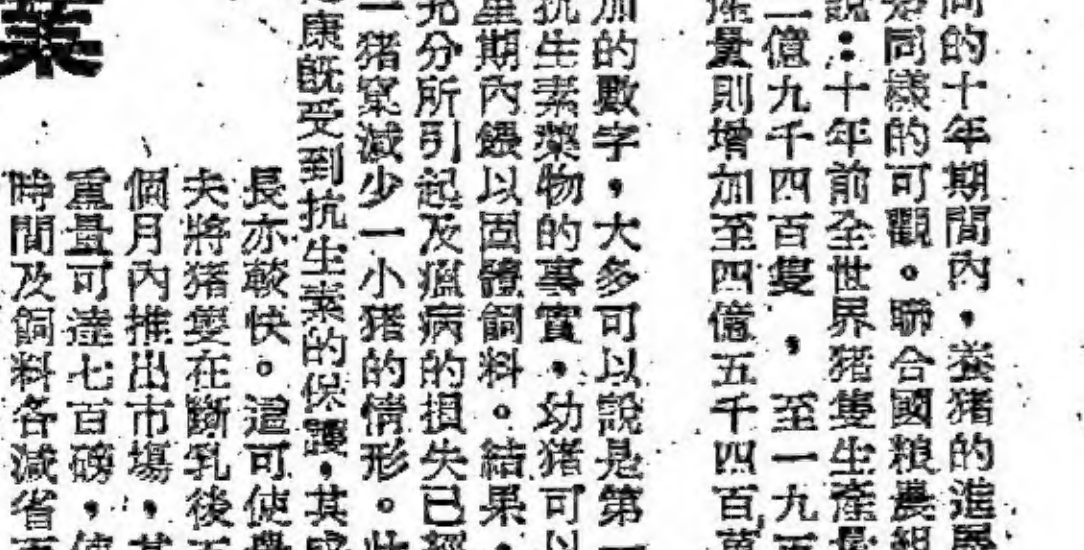 的十年期間內，養猪的進展
同樣的可觀。聯合國粮農組
說：十年前全世界猪隻生產量
二億九千四百隻，至一九五
量則增加至四億五千四百萬
加的數字，大多可以說是第一
抗生素藥物的事實，幼猪可以
星期內餵以固體飼料。結果，
充分所引起及瘟病的損失已經
一猪窠減少一小猪的情形。此
康既受到抗生素的保護，其成
長亦較快。這可使農
夫將猪隻在斷乳後五
個月內推出市場，其
重量可達七百磅，使
時間及飼料各減省
業